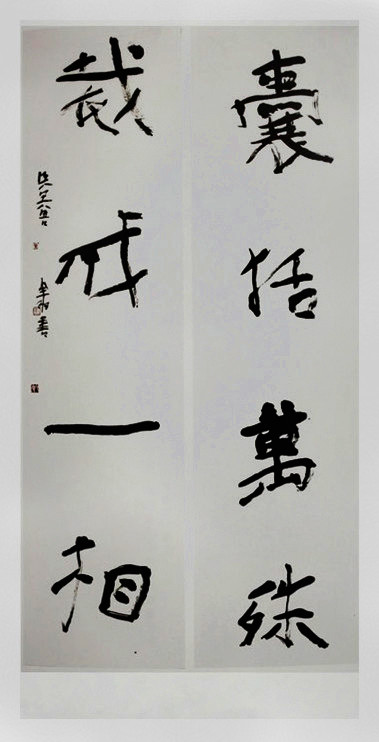 囊括萬殊
裁成一相